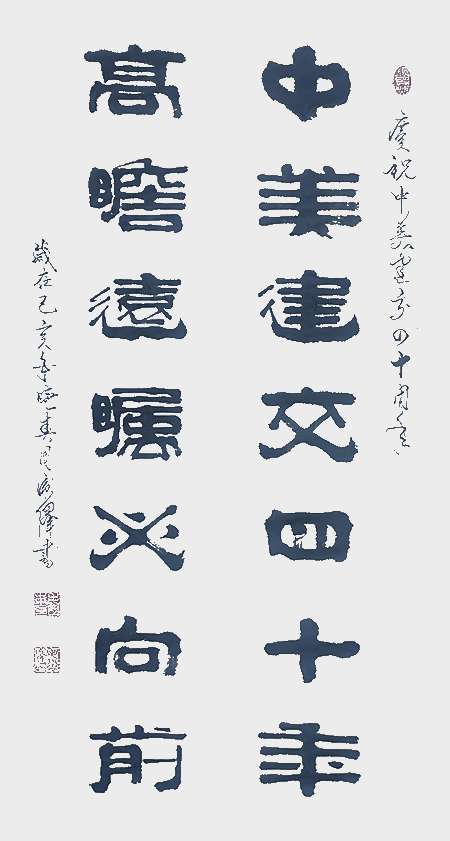 慶祝中美建交四十周年
中美建交四十年
高瞻遠矚必向前
歲在己亥年春書